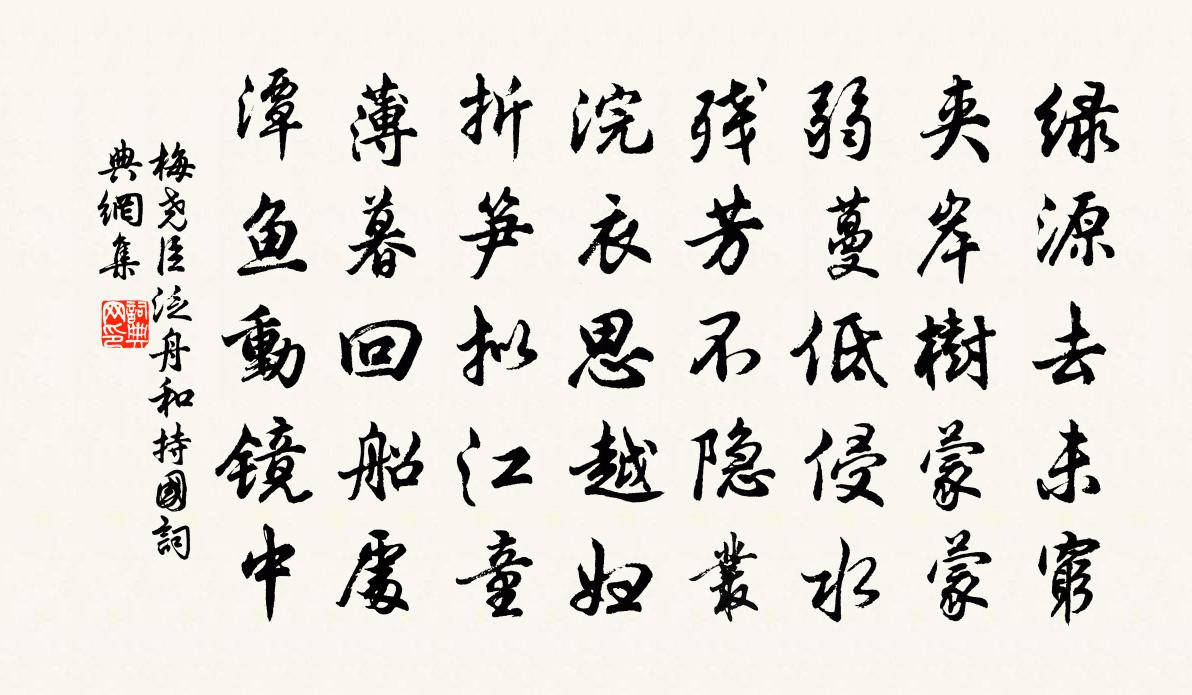 绿源去未窮
夹岸樹蒙蒙
弱蔓低侵水
残芳不隐叢
浣衣思越妇
折笋拟江童
薄暮回船處
潭鱼動镜中
梅尧臣泛舟和持國詞
典網集
詞典
网印